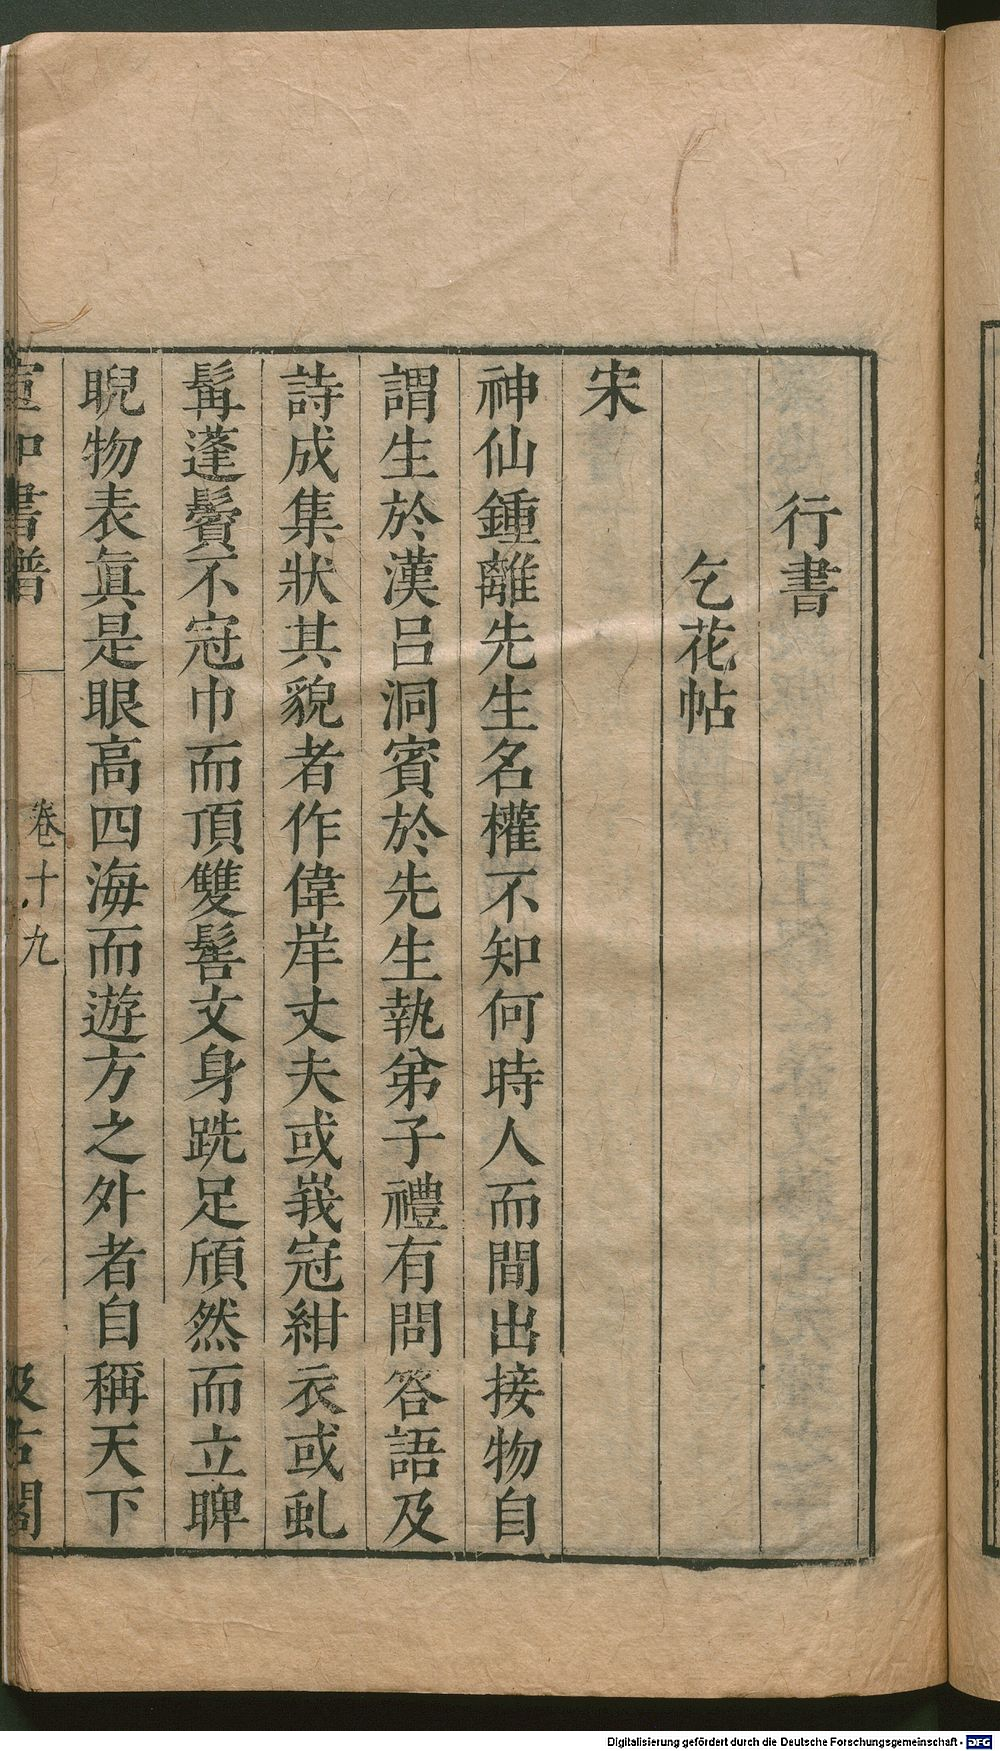 行書
乞花帖
宋
神仙鍾離先生名權不知何時人而間出接物自
謂生於漢呂洞賓於先生執弟子禮有問答語及
詩成集狀其貌者作偉岸丈夫或峩冠紺衣或虬
髯蓬鬢不冠巾而頂雙髻文身跣足頎然而立睥
睨物表眞是眼高四海而遊方之外者自稱天下
宣和書譜
卷十九
汲古閣
Digitalisierung gefördert durch die Deutsche Forschungsgemeinschaft - DFG